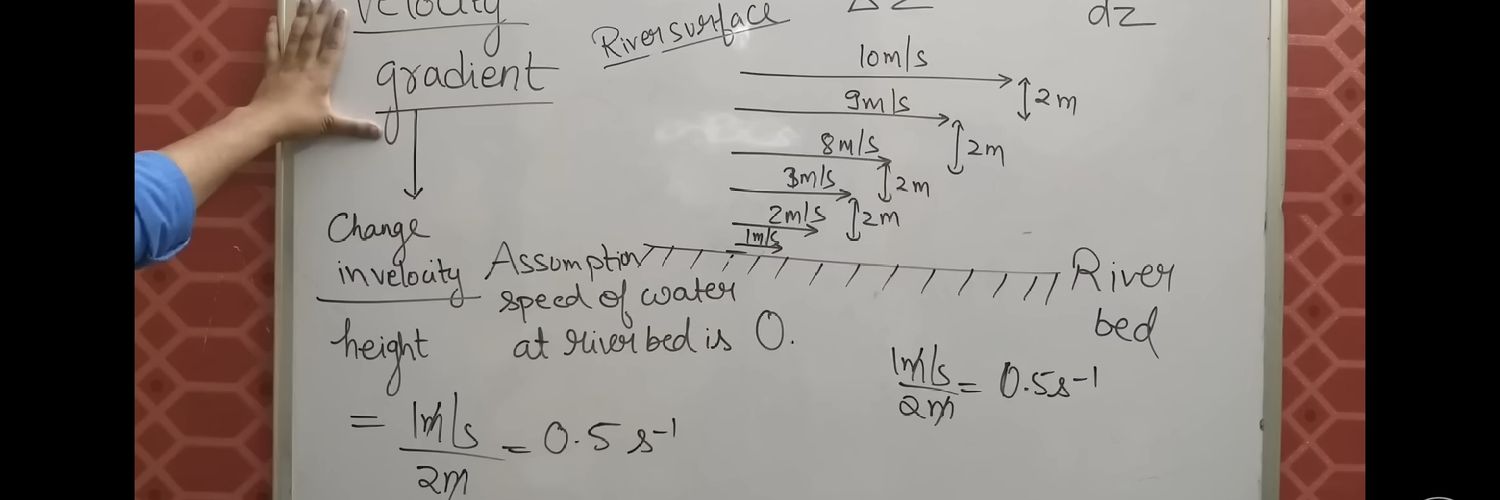 velocity
gradient
River surface
Δz
dz
10m/s
2m
9m/s
2m
8m/s
2m
3m/s
2m
2m/s
1m/s
Change
in velocity
height
= 1m/s
2m
= 0.5 s-1
Assumption
speed of water
at river bed is 0.
River
bed
1m/s
2m
= 0.5s-1